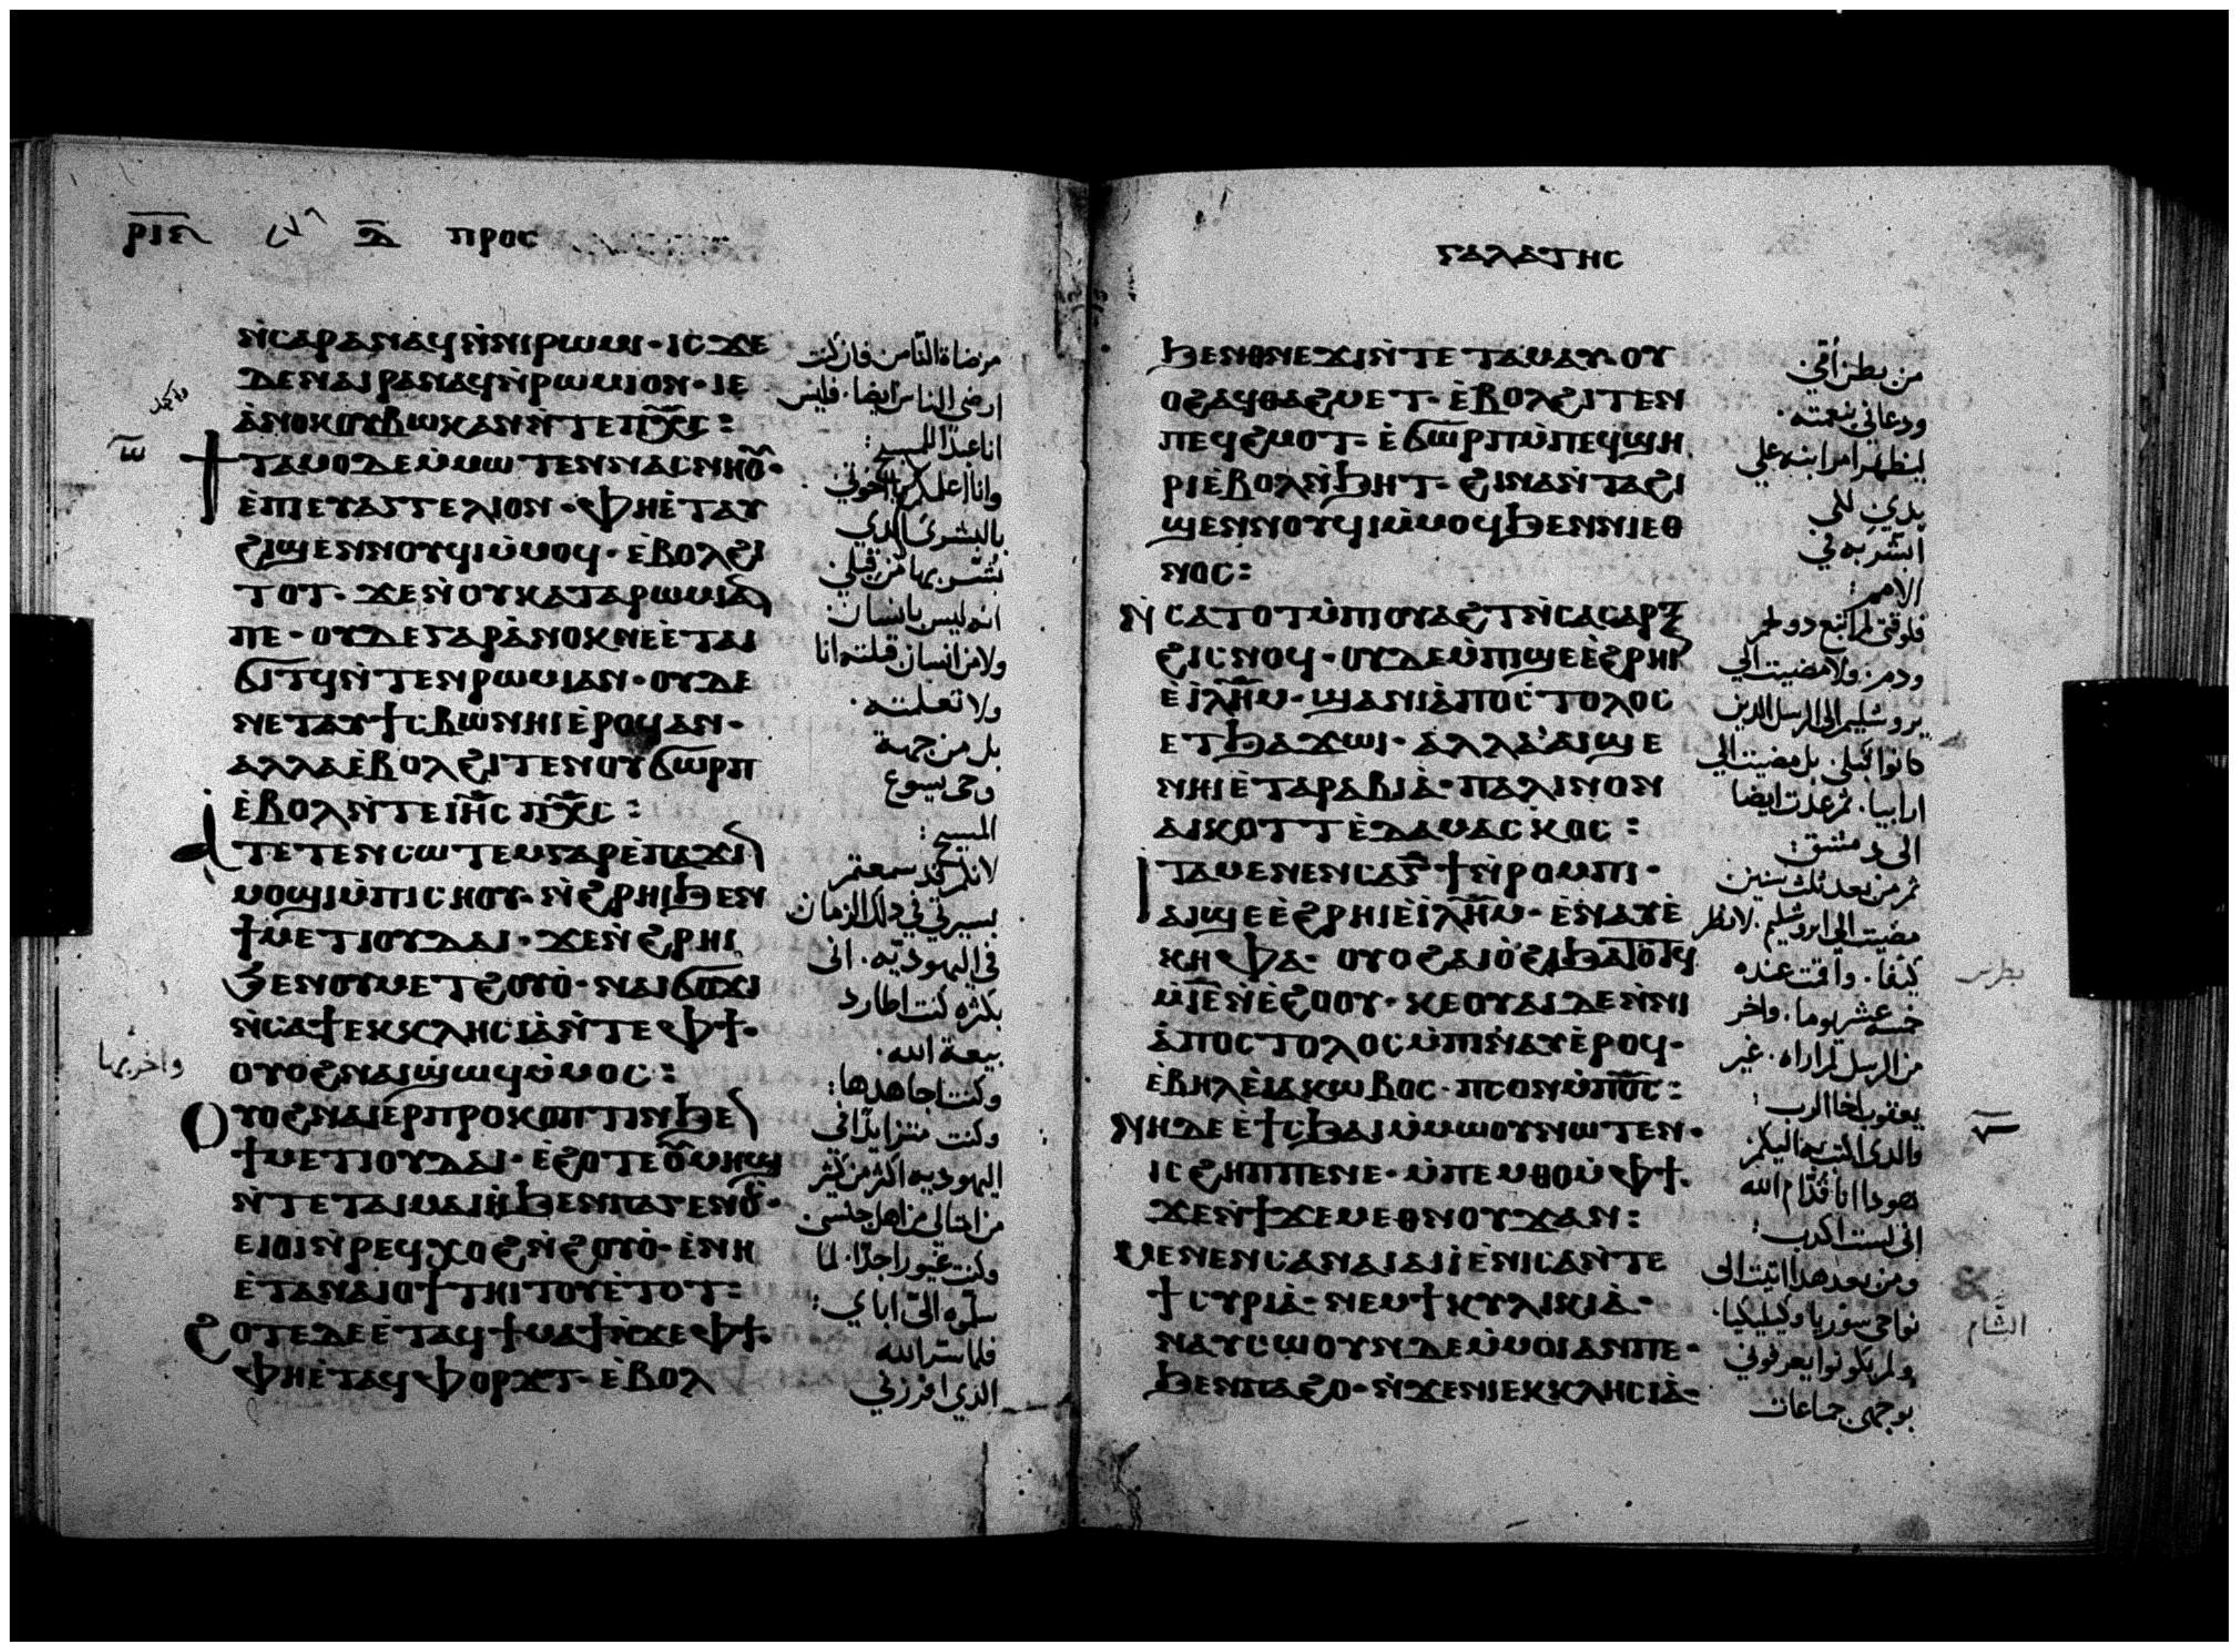 ⲣⲓⲏ ⲇ ⲡⲣⲟⲥ
ⲛ̀ⲥⲁⲣⲁⲛⲁϥⲛ̀ⲛⲓⲣⲱⲙⲓ· ⲓⲥϫⲉ
ⲇⲉⲛⲁⲓⲣⲁⲛⲁϥⲛ̀ⲣⲱⲙⲓⲟⲛ· ⲓⲉ
ⲁ̀ⲛⲟⲕⲟⲩⲃⲱⲕⲁⲛⲛ̀ⲧⲉⲡⲭ̅ⲥ̅:
ϯⲧⲁⲙⲟⲇⲉⲙ̀ⲙⲱⲧⲉⲛⲛⲁⲥⲛⲏⲟ̅ⲩ̅·
ⲉ̀ⲡⲓⲉⲩⲁⲅⲅⲉⲗⲓⲟⲛ· ⲫⲏⲉ̀ⲧⲁⲩ
ϩⲓϣⲉⲛⲛⲟⲩϥⲓⲙ̀ⲙⲟϥ· ⲉ̀ⲃⲟⲗϩⲓ
ⲧⲟⲧ· ϫⲉⲛ̀ⲟⲩⲕⲁⲧⲁⲣⲱⲙⲓⲁⲛ
ⲡⲉ· ⲟⲩⲇⲉⲅⲁⲣⲁ̀ⲛⲟⲕⲛⲉⲉ̀ⲧⲁⲓ
ϭⲓⲧϥⲛ̀ⲧⲉⲛⲣⲱⲙⲓⲁⲛ· ⲟⲩⲇⲉ
ⲛⲉⲧⲁⲩϯⲥⲃⲱⲛⲏⲓⲉ̀ⲣⲟϥⲁⲛ·
ⲁⲗⲗⲁⲉ̀ⲃⲟⲗϩⲓⲧⲉⲛⲟⲩϭⲱⲣⲡ
ⲉ̀ⲃⲟⲗⲛ̀ⲧⲉⲓⲏ̅ⲥ̅ ⲡⲭ̅ⲥ̅:
ⲁⲧⲉⲧⲉⲛⲥⲱⲧⲉⲙⲅⲁⲣⲉ̀ⲡⲁϫⲓⲛ
ⲙⲟϣⲓⲙ̀ⲡⲓⲥⲏⲟⲩ· ⲛ̀ϩⲣⲏⲓϧⲉⲛ
ϯⲙⲉⲧⲓⲟⲩⲇⲁⲓ· ϫⲉⲛ̀ϩⲣⲏⲓ
ϧⲉⲛⲟⲩⲙⲉⲧϩⲟⲩⲟ̀· ⲛⲁⲓϭⲟϫⲓ
ⲛ̀ⲥⲁϯⲉⲕⲕⲗⲏⲥⲓⲁ̀ⲛ̀ⲧⲉⲫϯ·
ⲟⲩⲟϩⲛⲁⲓϣⲱϥⲙ̀ⲙⲟⲥ:
ⲟⲩⲟϩⲛⲁⲓⲉⲣⲡⲣⲟⲕⲟⲡⲧⲓⲛϧⲉⲛ
ϯⲙⲉⲧⲓⲟⲩⲇⲁⲓ· ⲉϩⲟⲧⲉⲟ̅ⲩ̅ⲙⲏϣ
ⲛ̀ⲧⲉⲧⲁⲓⲙⲁⲓⲏϧⲉⲛⲡⲁⲅⲉⲛⲟⲥ·
ⲉⲓⲟⲓⲛ̀ⲣⲉϥⲭⲟϩⲛ̀ϩⲟⲩⲟ̀· ⲉ̀ⲛⲏ
ⲉ̀ⲧⲁⲛⲁⲓⲟϯⲧⲏⲓⲧⲟⲩⲉ̀ⲧⲟⲧ:
ϩⲟⲧⲉⲇⲉⲉ̀ⲧⲁϥϯⲙⲁϯⲛ̀ϫⲉⲫϯ·
ⲫⲏⲉ̀ⲧⲁϥⲫⲟⲣϫⲧ· ⲉ̀ⲃⲟⲗ
مرضاة الناس فان كنت
ارضى الناس ايضا· فليس
انا عبدًا للمسيح:
وانا اعلمكم يا اخوتي·
بالبشرى الذي
بُشّر بها من قبلي
انه ليس بانسان·
ولا من انسان قبلته انا
ولا تعلمته·
بل من جهة
وحى يسوع
المسيح:
لانكم قد سمعتم
بسيرتي في ذلك الزمان
في اليهوديّه· انى
بكثره كنت اطارد
بيعة الله·
وكنت اجاهدها:
وكنت متزايدًا في
اليهوديه اكثر من كثير
من اجيالى من اهل جنسى·
وكنت غيورا جدًا· لما
سلّموه الىّ اباي:
فلما سر الله
الذي افرزني
واخربها
ⲅⲁⲗⲁⲧⲏⲥ
ϧⲉⲛⲑⲛⲉϫⲓⲛ̀ⲧⲉⲧⲁⲙⲁⲩ· ⲟⲩ
ⲟϩⲁϥⲑⲁϩⲙⲉⲧ· ⲉ̀ⲃⲟⲗϩⲓⲧⲉⲛ
ⲡⲉϥϩⲙⲟⲧ· ⲉ̀ϭⲱⲣⲡⲙ̀ⲡⲉϥϣⲏ
ⲣⲓⲉ̀ⲃⲟⲗⲛ̀ϧⲏⲧ· ϩⲓⲛⲁⲛ̀ⲧⲁϩⲓ
ϣⲉⲛⲛⲟⲩϥⲓⲙ̀ⲙⲟϥϧⲉⲛⲛⲓⲉⲑ
ⲛⲟⲥ:
ⲛ̀ⲥⲁⲧⲟⲧⲙ̀ⲡⲓⲟⲩⲁϩⲧⲛ̀ⲥⲁⲥⲁⲣⲝ
ϩⲓⲥⲛⲟϥ· ⲟⲩⲇⲉⲙ̀ⲡⲓϣⲉⲉ̀ϩⲣⲏⲓ
ⲉ̀ⲓⲗ̅ⲏ̅ⲙ̅· ϣⲁⲛⲓⲁ̀ⲡⲟⲥⲧⲟⲗⲟⲥ
ⲉⲧϧⲁϫⲱⲓ· ⲁⲗⲗⲁⲁⲓϣⲉ
ⲛⲏⲓⲉ̀ⲧⲁⲣⲁⲃⲓⲁ̀· ⲡⲁⲗⲓⲛⲟⲛ
ⲁⲓⲕⲟⲧⲧⲉ̀ⲇⲁⲙⲁⲥⲕⲟⲥ:
ⲓⲧⲁⲙⲉⲛⲉⲛⲥⲁⲅ̅ϯⲛ̀ⲣⲟⲙⲡⲓ·
ⲁⲓϣⲉⲉ̀ϩⲣⲏⲓⲉ̀ⲓⲗ̅ⲏ̅ⲙ̅· ⲉ̀ⲛⲁⲩⲉ̀
ⲕⲏⲫⲁ· ⲟⲩⲟϩⲁⲓⲟ̀ϩⲓϧⲁⲧⲟⲧϥ
ⲙ̀ⲓ̅ⲉ̅ⲛ̀ⲉ̀ϩⲟⲟⲩ· ⲕⲉⲟⲩⲁⲓⲇⲉⲛ̀ⲛⲓ
ⲁ̀ⲡⲟⲥⲧⲟⲗⲟⲥⲙ̀ⲡⲓⲛⲁⲩⲉ̀ⲣⲟϥ·
ⲉⲃⲏⲗⲉ̀ⲓⲁⲕⲱⲃⲟⲥ· ⲡⲥⲟⲛⲙ̀ⲡⲟ̅ⲥ̅:
ⲛⲏⲇⲉⲉ̀ϯⲥϧⲁⲓⲙ̀ⲙⲱⲟⲩⲛⲱⲧⲉⲛ·
ⲓⲥϩⲏⲡⲡⲉⲛⲉ· ⲙ̀ⲡⲉⲙⲑⲟⲙ̀ⲫϯ·
ϫⲉⲛϯϫⲉⲙⲉⲑⲛⲟⲩϫⲁⲛ:
ⲙⲉⲛⲉⲛⲥⲁⲛⲁⲓⲁⲓⲓ̀ⲉ̀ⲛⲓⲥⲁⲛ̀ⲧⲉ
ϯⲥⲩⲣⲓⲁ̀· ⲛⲉⲙϯⲕⲩⲗⲓⲕⲓⲁ̀·
ⲛⲁⲩⲥⲱⲟⲩⲛⲇⲉⲙ̀ⲙⲟⲓⲁⲛⲡⲉ·
ϧⲉⲛⲡⲁϩⲟ· ⲛ̀ϫⲉⲛⲓⲉⲕⲕⲗⲏⲥⲓⲁ̀·
من بطن اُمّي
ودعاني بنعمته·
ليظهر امر ابنه على
يدي لكي
ابشّر به في
الامم:
فلوقتي لم اتبع ذو لحم
ودم· ولا مضيت الي
يروشليم الى الرسل الذين
كانوا قبلي· بل مضيت الي
ارابيا· ثم عدت ايضا
الى دمشق:
ثم من بعد ثلث سنين
مضيت الي ايروشليم· لانظر
كيفا· واقمت عنده
خمسه عشر يوما· واخر
من الرسل لم اراه· غير
يعقوب اخا الرب:
فالذى اكتب به اليكم
هوذا انا قدّام الله
انى لست اكذب:
ومن بعد هذا اتيت الى
نواحى سوريا وكيليكيا·
ولم يكونوا يعرفوني
بوجهى جماعات
بطرس
الشام